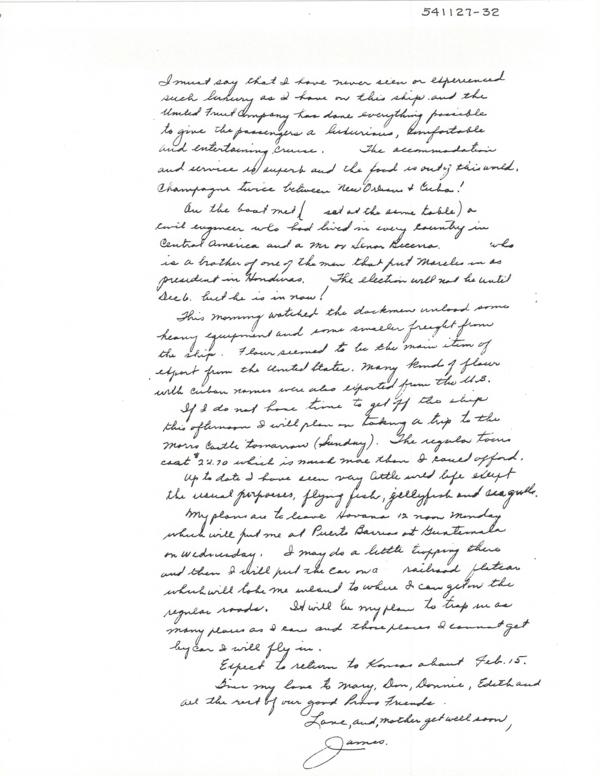 541127-32
I must say that I have never seen or experienced
such luxury as I have on this ship and the
United Fruit Company has done everything possible
to give the passengers a luxurious, comfortable
and entertaining cruise. The accommodation
and service is superb and the food is out of this world.
Champagne twice between New Orleans & Cuba!
On the boat met (sat at the same table) a
civil engineer who had lived in every country in
Central America and a Mr or Senor Becerra who
is a brother of one of the men that put Morales in as
president in Honduras. The election will not be until
Dec 6. but he is in now!
This morning watched the dockmen unload some
heavy equipment and some smaller freight from
the ship. Flour seemed to be the main item of
export from the United States. Many kind of flour
with Cuban names were also exported from the U.S.
If I do not have time to get off the ship
this afternoon I will plan on taking a trip to the
Morro Castle tomorrow (Sunday). The regular tours
cost $22.70 which is much more than I could afford.
Up to date I have seen very little wild life except
the usual porpoises, flying fish, jellyfish and sea gulls.
My plans are to leave Havana 12 noon Monday
which will put me at Puerto Barrios at Guatemala
on Wednesday. I may do a little trapping there
and then I will put the car on a railroad flatcar
which will take me inland to where I can get on the
regular roads. It will be my plan to trap in as
many places as I can and those places I cannot get
by car I will fly in.
Expect to return to Kansas about Feb. 15.
Give my love to Mary, Don, Donnie, Edith and
all the rest of our good Provo Friends.
Love, and, mother get well soon,
James.